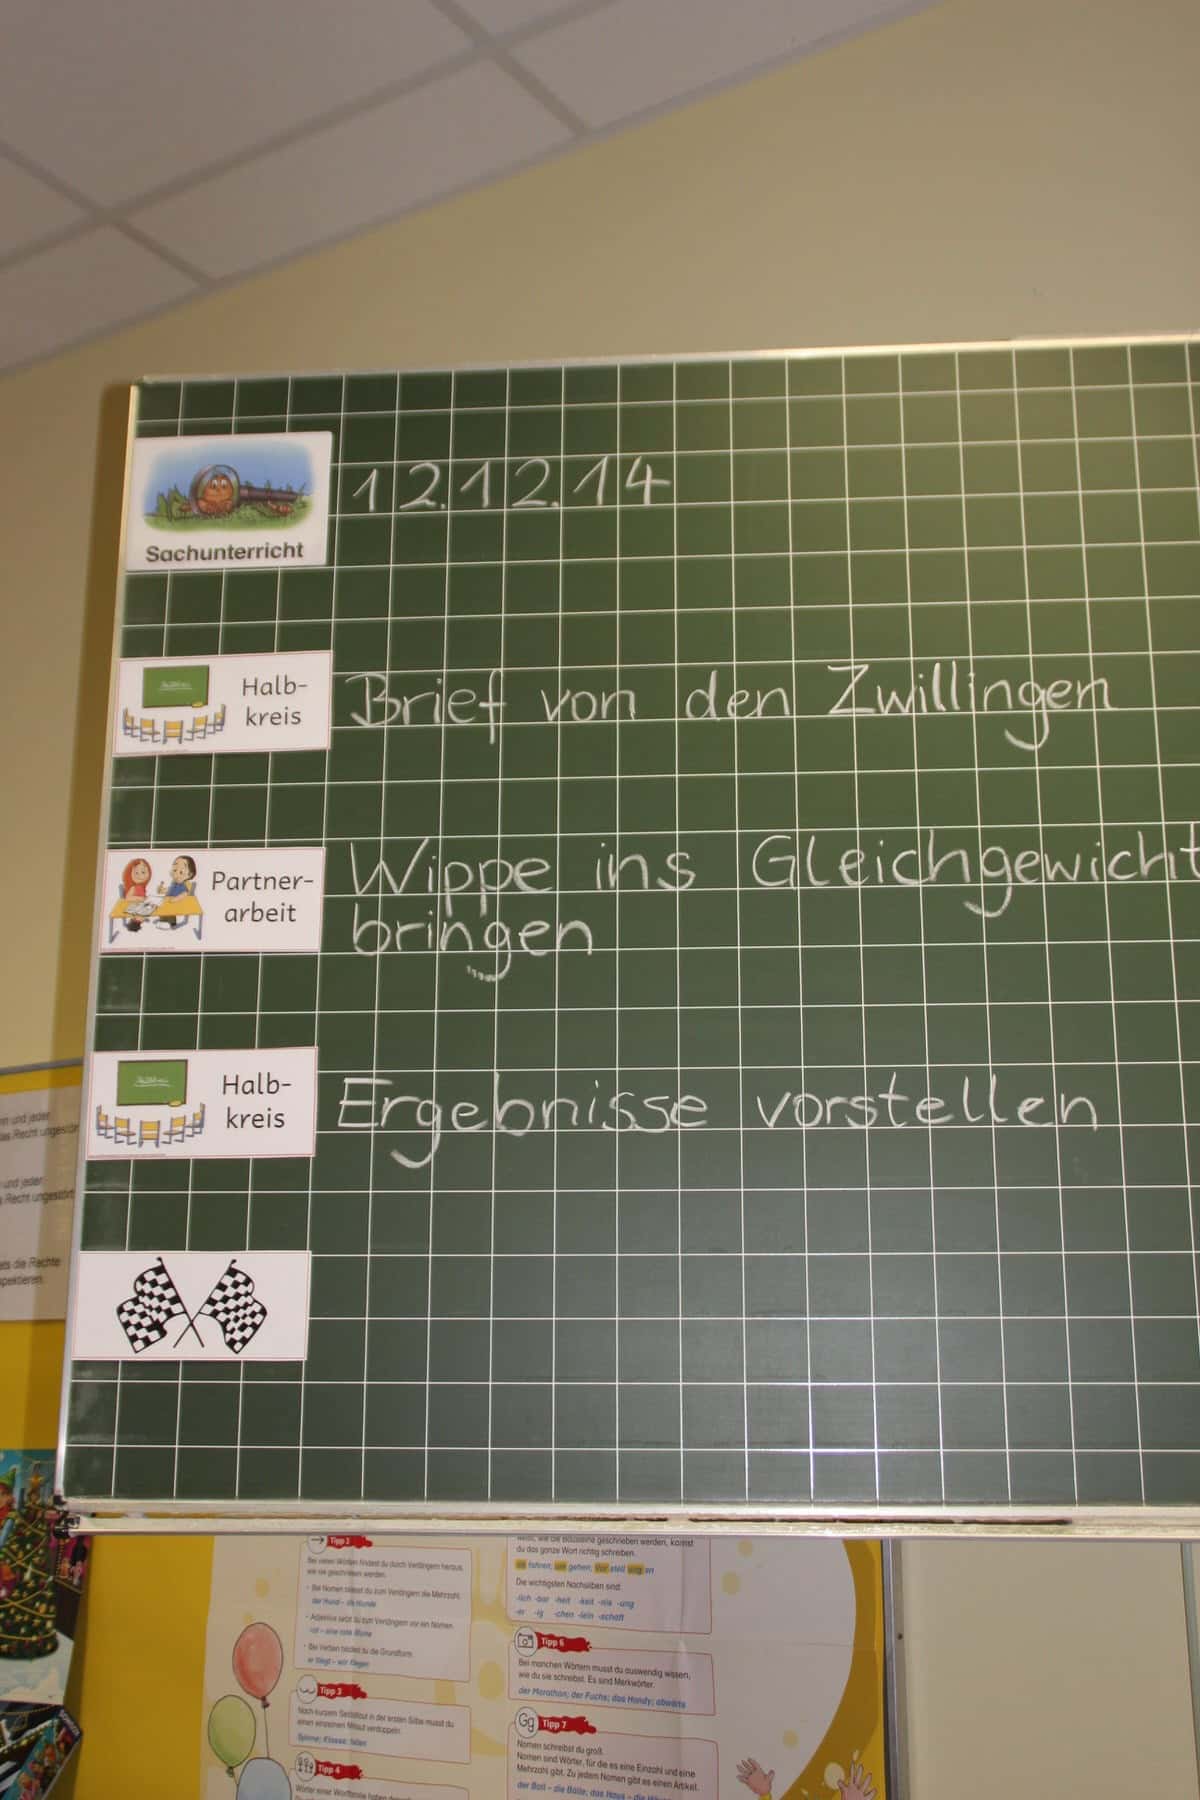 12.12.14
Sachunterricht
Halb-
kreis
Brief von den Zwillingen
Partner-
arbeit
Wippe ins Gleichgewicht
bringen
Halb-
kreis
Ergebnisse vorstellen
und jeder
das Recht ungestört
und jeder
Recht ungestört
die Rechte
Tipp 2
Bei vielen Wörtern findest du durch Verlängern heraus,
wie sie geschrieben werden.
· Bei Nomen bildest du zum Verlängern die Mehrzahl.
der Hund – die Hunde
· Adjektive setzt du zum Verlängern vor ein Nomen.
rot – eine rote Blume
· Bei Verben bildest du die Grundform.
er fliegt – wir fliegen
Tipp 3
Nach kurzem Selbstlaut in der ersten Silbe musst du
einen einzelnen Mitlaut verdoppeln.
Spinne; Klasse; fallen
Tipp 4
Wörter einer Wortfamilie haben
wie die Bausteine geschrieben werden, kannst
du das ganze Wort richtig schreiben.
Die wichtigsten Nachsilben sind:
-lich -bar -heit -keit -nis -ung
-er -ig -chen -lein -schaft
Tipp 6
Bei manchen Wörtern musst du auswendig wissen,
wie du sie schreibst. Es sind Merkwörter.
der Marathon; der Fuchs; das Handy; abwärts
Gg
Tipp 7
Nomen schreibst du groß.
Nomen sind Wörter, für die es eine Einzahl und eine
Mehrzahl gibt. Zu jedem Nomen gibt es einen Artikel.
der Ball – die Bälle; das Haus – die